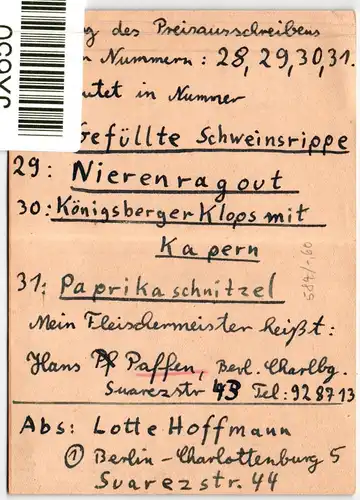 JX650
g des Preisausschreibens
n Nummern: 28, 29, 30, 31.
utet in Nummer
Gefüllte Schweinsrippe
29: Nierenragout
30: Königsberger Klops mit
Kapern
31: Paprikaschnitzel
584/-,60
Mein Fleischermeister heißt:
Hans Paffen, Berl. Charlbg.
Suarezstr 43 Tel: 92 87 13
Abs: Lotte Hoffmann
① Berlin-Charlottenburg 5
Suarezstr. 44